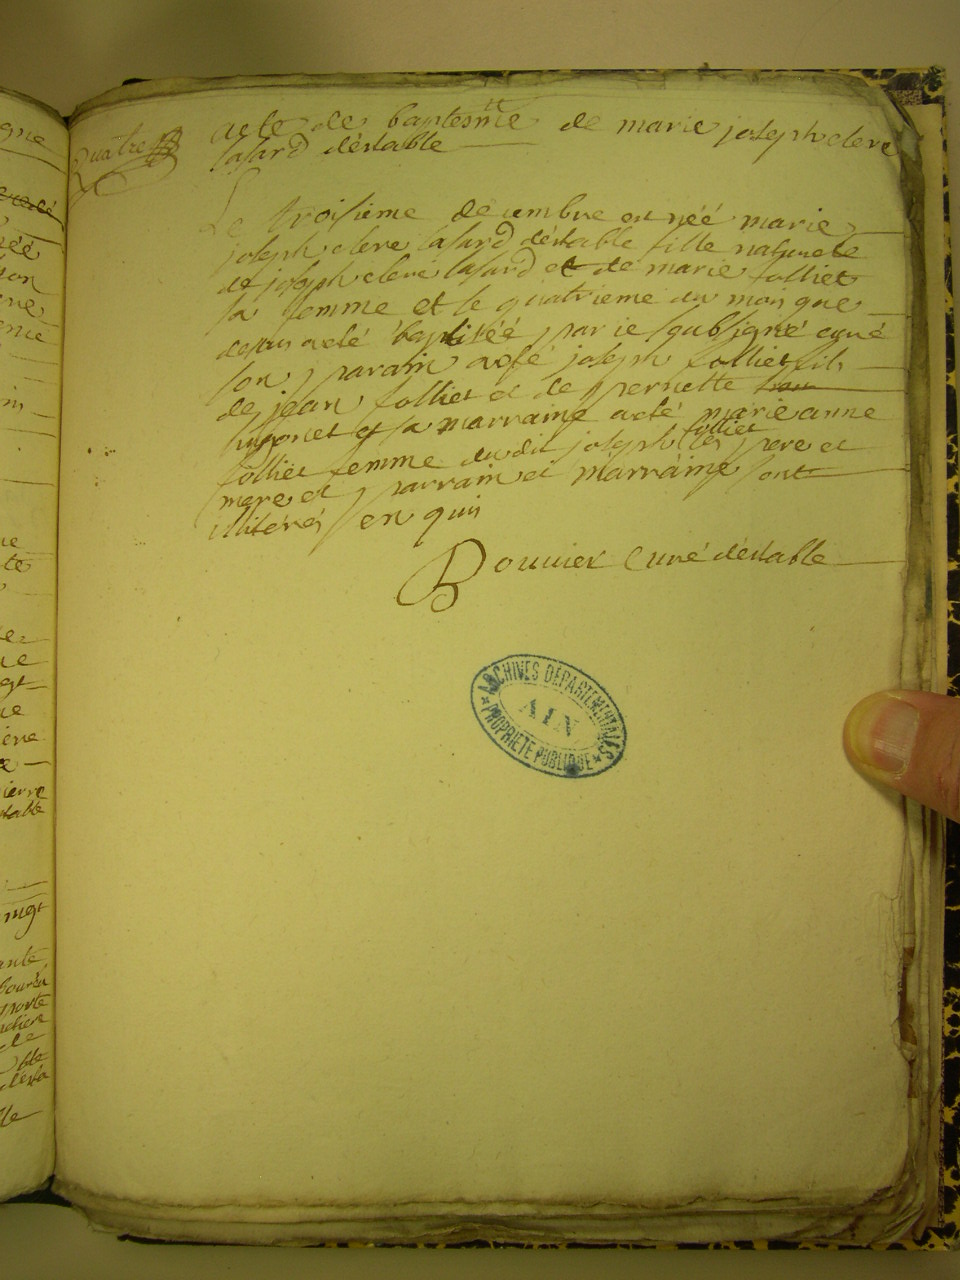 Quatre
acte de baptesme de marie joseph clere
lasard déstable
Le troisieme decembre est néé marie
joseph clere lasard déstable fille naturele
de joseph clere lasard et de marie folliet
sa femme et le quatrieme du mois que
desus a eté baptiséé par je soubsigné curé
son parain a eté joseph folliet fils
de jean folliet et de pernette
et sa marraine a eté marie anne
folliet femme dudit joseph folliet les pere et
mere et parrain et marraine sont
illiterés en quoi
Bouvier Curé déstable
ARCHIVES DÉPARTEMENTALES
AIN
PROPRIÉTÉ PUBLIQUE